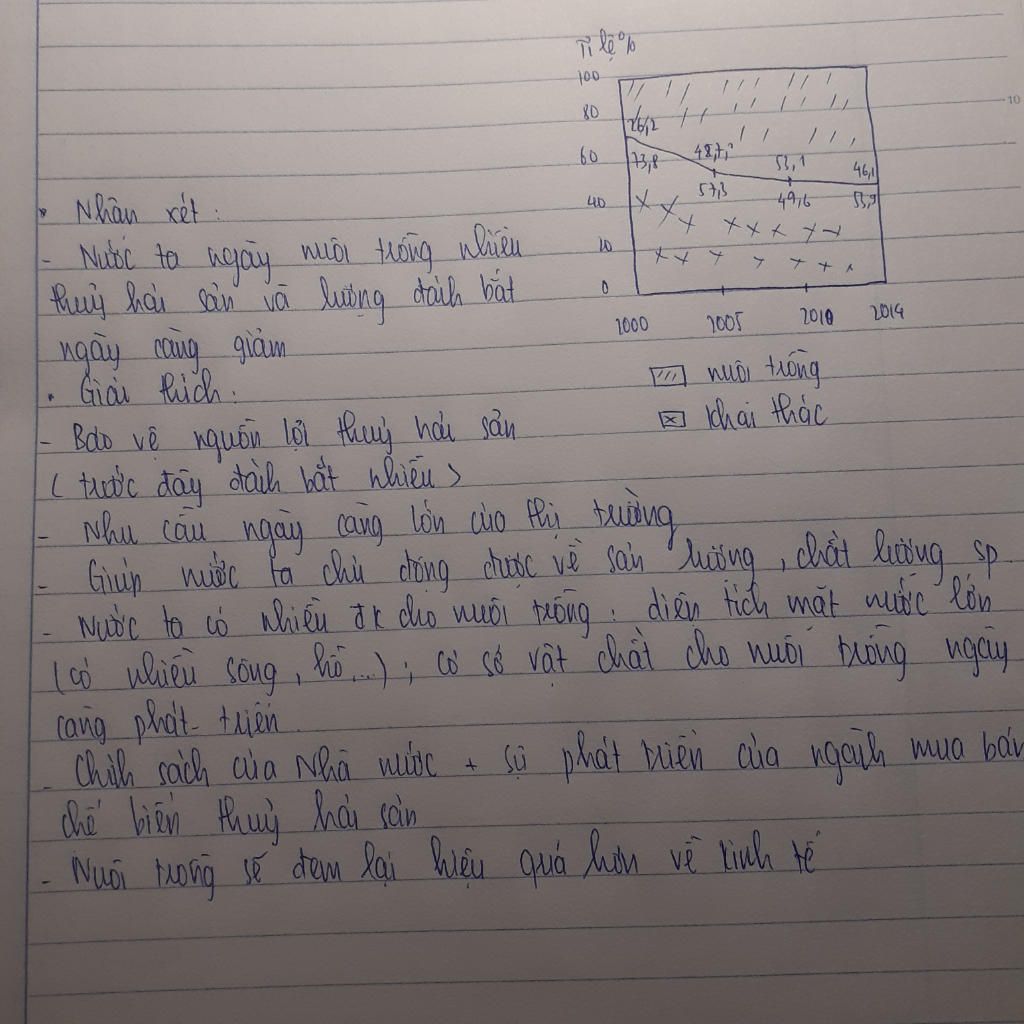 Tỉ lệ %
100
80
60
40
20
0
26,2
73,8
48,7
57,3
53,1
49,6
46,1
53,9
2000 2005 2010 2014
nuôi trồng
khai thác
• Nhận xét:
- Nước ta ngày nuôi trồng nhiều
thuỷ hải sản và lượng đánh bắt
ngày càng giảm
• Giải thích:
- Bảo vệ nguồn lợi thuỷ hải sản
(trước đây đánh bắt nhiều)
- Nhu cầu ngày càng lớn của thị trường
- Giúp nước ta chủ động được về sản lượng, chất lượng sp
- Nước ta có nhiều đk cho nuôi trồng: diện tích mặt nước lớn
(có nhiều sông, hồ...); cơ sở vật chất cho nuôi trồng ngày
càng phát triển
- Chính sách của Nhà nước + sự phát triển của ngành mua bán
chế biến thuỷ hải sản
- Nuôi trồng sẽ đem lại hiệu quả hơn về kinh tế
10